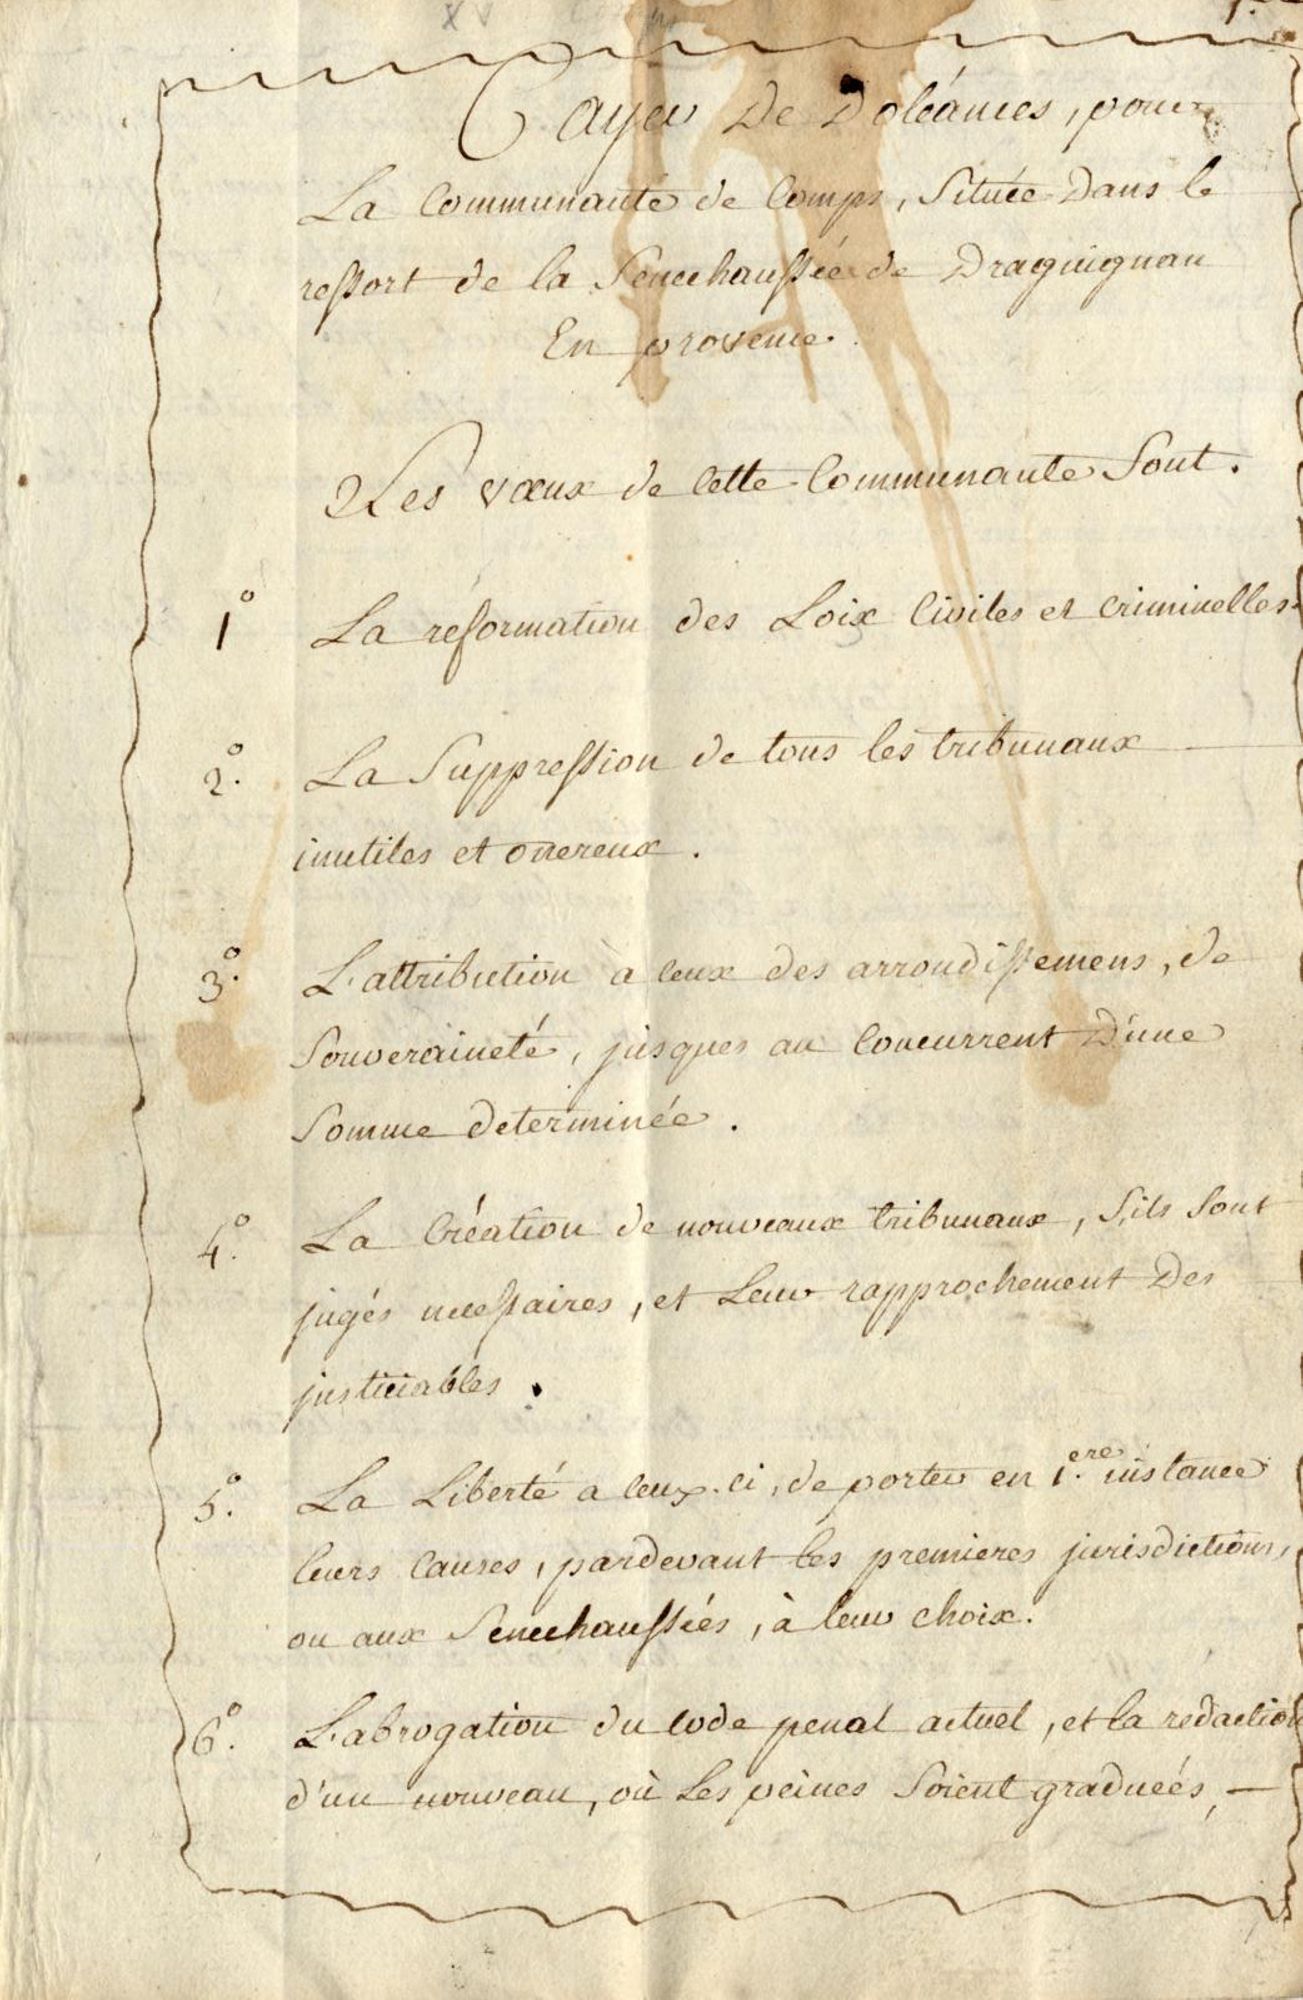 Cayer De Doléances, pour
La Communauté de Comps, Située Dans le
ressort de la Senechaussée de Draguignan
En provence.
Les vœux de cette Communauté Sont.
1° La réformation des Loix Civiles et criminelles.
2°. La Suppression de tous les tribunaux
inutiles et onereux.
3°. L'attribution à ceux des arrondissemens, de
Souveraineté, jusques au concurrent D'une
Somme determinée.
4°. La Création de nouveaux tribunaux, S'ils Sont
jugés necessaires, et Leur rapprochement Des
justiciables.
5°. La Liberté a ceux-ci, de porter en 1.ere instance
leurs Causes, pardevant les premieres jurisdictions,
ou aux Senechaussées, à leur choix.
6°. L'abrogation du code penal actuel, et la redaction
d'un nouveau, où Les peines Soient graduées, —